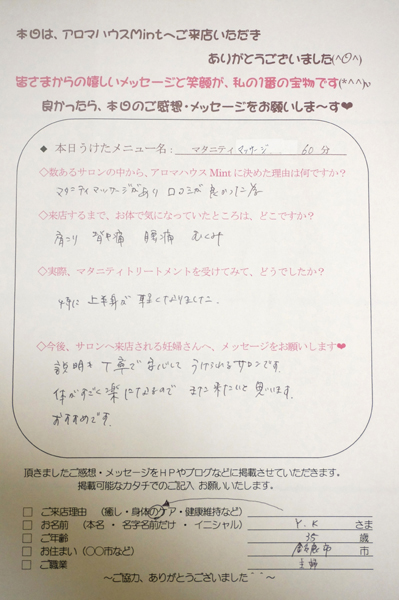 本日は、アロマハウスMintへご来店いただき
ありがとうございました(^O^)
皆さまからの嬉しいメッセージと笑顔が、私の1番の宝物です(*^^)v
良かったら、本日のご感想・メッセージをお願いしま～す❤
◆ 本日うけたメニュー名： マタニティマッサージ 60分
◇数あるサロンの中から、アロマハウス Mint に決めた理由は何ですか？
マタニティマッサージがあり 口コミが 良かった為
◇来店するまで、お体で気になっていたところは、どこですか？
肩こり 背中痛 腰痛 むくみ
◇実際、マタニティトリートメントを受けてみて、どうでしたか？
特に 上半身が 軽くなりました。
◇今後、サロンへ来店される妊婦さんへ、メッセージをお願いします❤
説明も 丁寧で 安心して うけられるサロンです。
体がすごく楽になるので また来たいと 思います。
おすすめです。
頂きましたご感想・メッセージをＨＰやブログなどに掲載させていただきます。
掲載可能なカタチでのご記入 お願いいたします。
□ ご来店理由 （癒し・身体のケア・健康維持など）
□ お名前 （本名 ・ 名字名前だけ ・ イニシャル） Y.K さま
□ ご年齢 35 歳
□ お住まい （〇〇市など） 市
□ ご職業 主婦
～ご協力、ありがとうございました＾＾～